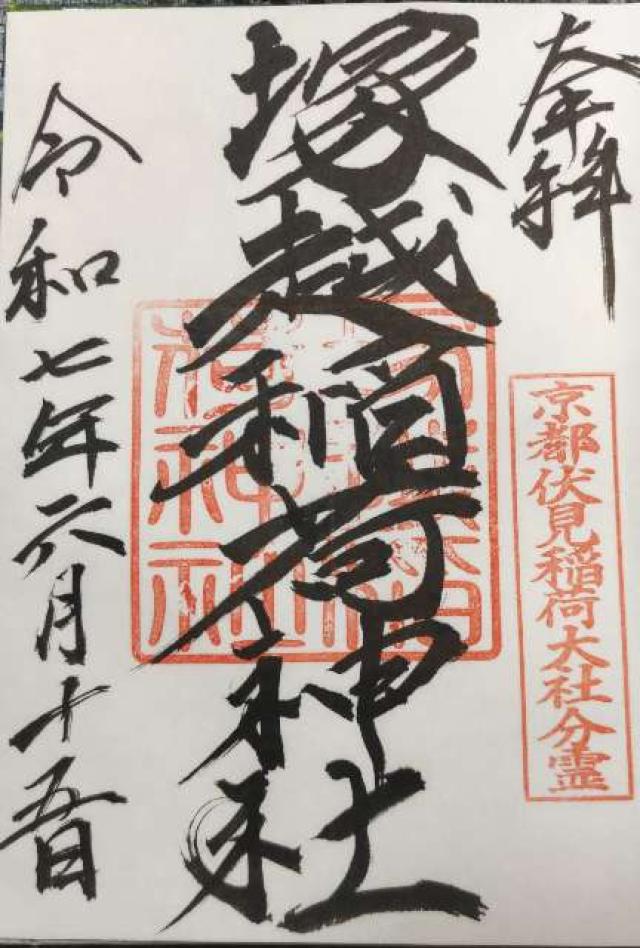 奉拝
京都伏見稲荷大社分霊
塚越稲荷神社
令和七年六月十五日